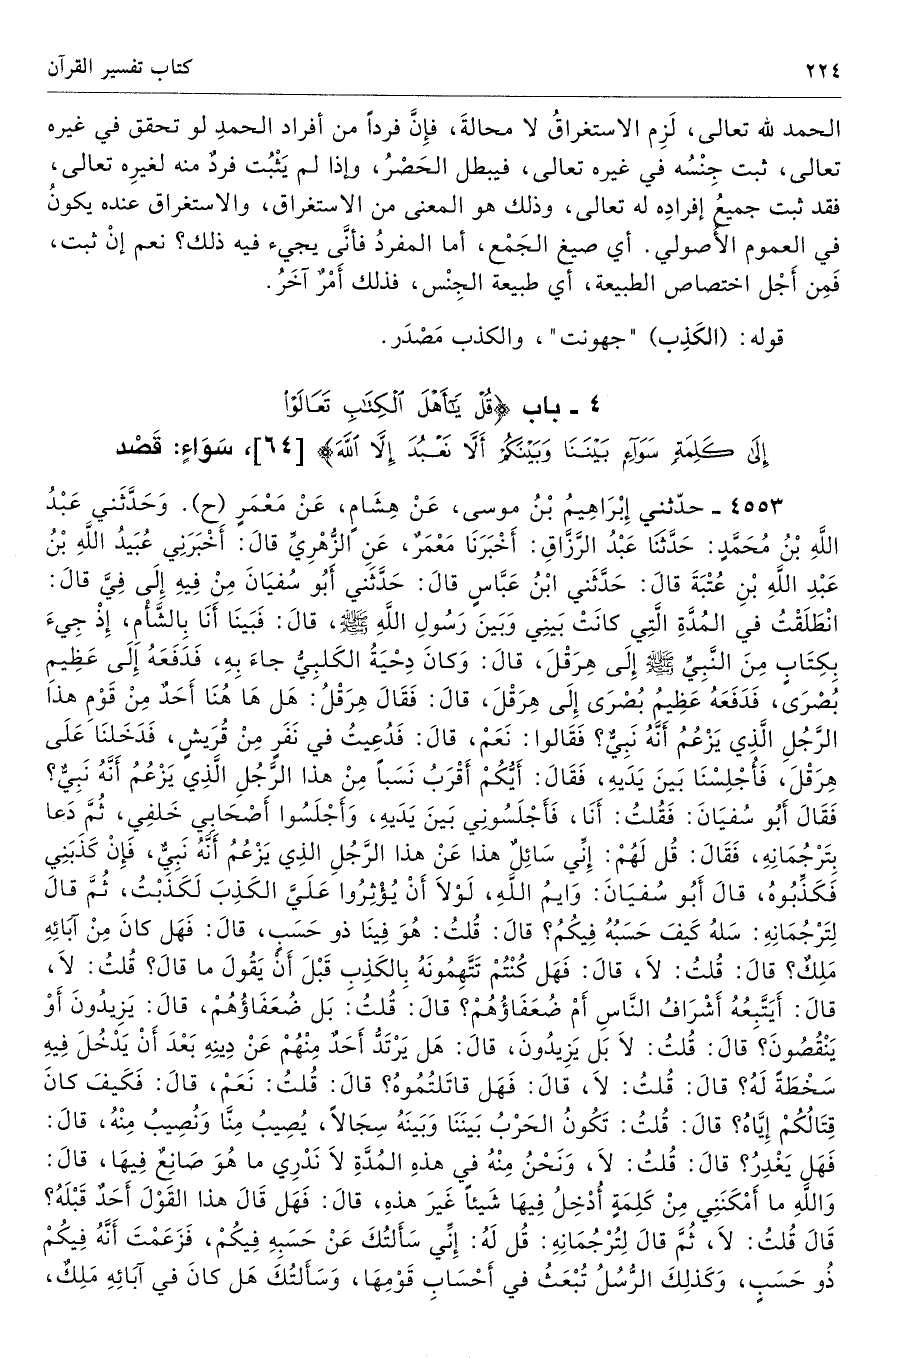 ٢٢٤ كتاب تفسير القرآن
الحمد لله تعالى، لَزِم الاستغراقُ لا محالةَ، فإِنَّ فرداً من أفراد الحمدِ لو تحقق في غيره
تعالى، ثبت جِنْسُه في غيره تعالى، فيبطل الحَصْرُ، وإذا لم يَثْبُت فردٌ منه لغيرِه تعالى،
فقد ثبت جميعُ إفرادِه له تعالى، وذلك هو المعنى من الاستغراق، والاستغراق عنده يكونُ
في العموم الأُصولي. أي صيغ الجَمْع، أما المفردُ فأنَّى يجيء فيه ذلك؟ نعم إنْ ثبت،
فَمِن أَجْل اختصاص الطبيعة، أي طبيعة الجِنْس، فذلك أَمْرٌ آخَرُ.
قوله: (الكَذِب) "جهونت"، والكذب مَصْدَر.
٤ ـ باب ﴿قُلْ يَٰٓأَهْلَ ٱلْكِتَٰبِ تَعَالَوْاْ
إِلَىٰ كَلِمَةٍ سَوَآءٍ بَيْنَنَا وَبَيْنَكُمْ أَلَّا نَعْبُدَ إِلَّا ٱللَّهَ﴾ [٦٤]، سَوَاءٍ: قَصْد
٤٥٥٣ ـ حدّثني إِبْرَاهِيمُ بْنُ موسى، عَنْ هِشَامٍ، عَنْ مَعْمَرٍ (ح). وَحَدَّثَني عَبْدُ
اللَّهِ بْنُ مُحَمَّدٍ: حَدَّثَنَا عَبْدُ الرَّزَّاقِ: أَخْبَرَنَا مَعْمَرٌ، عَنِ الزُّهْرِيِّ قالَ: أَخْبَرَنِي عُبَيدُ اللَّهِ بْنُ
عَبْدِ اللَّهِ بْنِ عُتْبَةَ قالَ: حَدَّثَني ابْنُ عَبَّاسٍ قالَ: حَدَّثَني أَبُو سُفيَانَ مِنْ فِيهِ إِلَى فِيَّ قالَ:
انْطَلَقْتُ في المُدَّةِ الَّتِي كانَتْ بَيْنِي وَبَينَ رَسُولِ اللَّهِ ﷺ، قالَ: فَبَينَا أَنَا بِالشَّأْمِ، إِذْ جِيءَ
بِكِتَابٍ مِنَ النَّبِيِّ ﷺ إِلَى هِرَقْلَ، قالَ: وَكانَ دِحْيَةُ الكَلبِيُّ جاءَ بِهِ، فَدَفَعَهُ إِلَى عَظِيمِ
بُصْرَى، فَدَفَعَهُ عَظِيمُ بُصْرَى إِلَى هِرَقْلَ، قالَ: فَقَالَ هِرَقْلُ: هَل هَا هُنَا أَحَدٌ مِنْ قَوْمِ هذا
الرَّجُلِ الَّذِي يَزْعُمُ أَنَّهُ نَبِيٌّ؟ فَقالوا: نَعَمْ، قالَ: فَدُعِيتُ في نَفَرٍ مِنْ قُرَيشٍ، فَدَخَلنَا عَلَى
هِرَقْلَ، فَأُجْلِسْنَا بَينَ يَدَيهِ، فَقَالَ: أَيُّكُمْ أَقْرَبُ نَسَباً مِنْ هذا الرَّجُلِ الَّذِي يَزْعُمُ أَنَّهُ نَبِيٌّ؟
فَقَالَ أَبُو سُفيَانَ: فَقُلتُ: أَنَا، فَأَجْلَسُونِي بَينَ يَدَيهِ، وَأَجْلَسُوا أَصْحَابِي خَلفِي، ثُمَّ دَعا
بِتَرْجُمَانِهِ، فَقَالَ: قُل لَهُمْ: إِنِّي سَائِلٌ هذا عَنْ هذا الرَّجُلِ الذِي يَزْعُمُ أَنَّهُ نَبِيٌّ، فَإِنْ كَذَبَنِي
فَكَذِّبُوهُ، قالَ أَبُو سُفيَانَ: وَايمُ اللَّهِ، لَوْلاَ أَنْ يُؤْثِرُوا عَلَيَّ الكَذِبَ لَكَذَبْتُ، ثُمَّ قالَ
لِتَرْجُمَانِهِ: سَلهُ كَيفَ حَسَبُهُ فِيكُمْ؟ قالَ: قُلتُ: هُوَ فِينَا ذو حَسَبٍ، قالَ: فَهَل كانَ مِنْ آبَائِهِ
مَلِكٌ؟ قالَ: قُلتُ: لاَ، قالَ: فَهَل كُنْتُمْ تَتَّهِمُونَهُ بِالكَذِبِ قَبْلَ أَنْ يَقُولَ ما قالَ؟ قُلتُ: لاَ،
قالَ: أَيَتَّبِعُهُ أَشْرَافُ النَّاسِ أَمْ ضُعَفَاؤُهُمْ؟ قالَ: قُلتُ: بَل ضُعَفَاؤُهُمْ، قالَ: يَزِيدُونَ أَوْ
يَنْقُصُونَ؟ قالَ: قُلتُ: لاَ بَل يَزِيدُونَ، قالَ: هَل يَرْتَدُّ أَحَدٌ مِنْهُمْ عَنْ دِينِهِ بَعْدَ أَنْ يَدْخُلَ فِيهِ
سَخْطَةً لَهُ؟ قالَ: قُلتُ: لاَ، قالَ: فَهَل قاتَلتُمُوهُ؟ قالَ: قُلتُ: نَعَمْ، قالَ: فَكَيفَ كانَ
قِتَالُكُمْ إِيَّاهُ؟ قالَ: قُلتُ: تَكُونُ الحَرْبُ بَيْنَنَا وَبَينَهُ سِجَالاً، يُصِيبُ مِنَّا وَنُصِيبُ مِنْهُ، قالَ:
فَهَل يَغْدِرُ؟ قالَ: قُلتُ: لاَ، وَنَحْنُ مِنْهُ في هذهِ المُدَّةِ لاَ نَدْرِي ما هُوَ صَانِعٌ فِيهَا، قالَ:
وَاللَّهِ ما أَمْكَنَنِي مِنْ كَلِمَةٍ أُدْخِلُ فِيهَا شَيئاً غَيرَ هذهِ، قالَ: فَهَل قالَ هذا القَوْلَ أَحَدٌ قَبْلَهُ؟
قالَ قُلتُ: لاَ، ثُمَّ قالَ لِتُرْجُمَانِهِ: قُل لَهُ: إِنِّي سَأَلتُكَ عَنْ حَسَبِهِ فِيكُمْ، فَزَعَمْتَ أَنَّهُ فِيكُمْ
ذُو حَسَبٍ، وَكَذلِكَ الرُّسُلُ تُبْعَثُ في أَحْسَابِ قَوْمِهَا، وَسَأَلتُكَ هَل كانَ في آبَائِهِ مَلِكٌ،